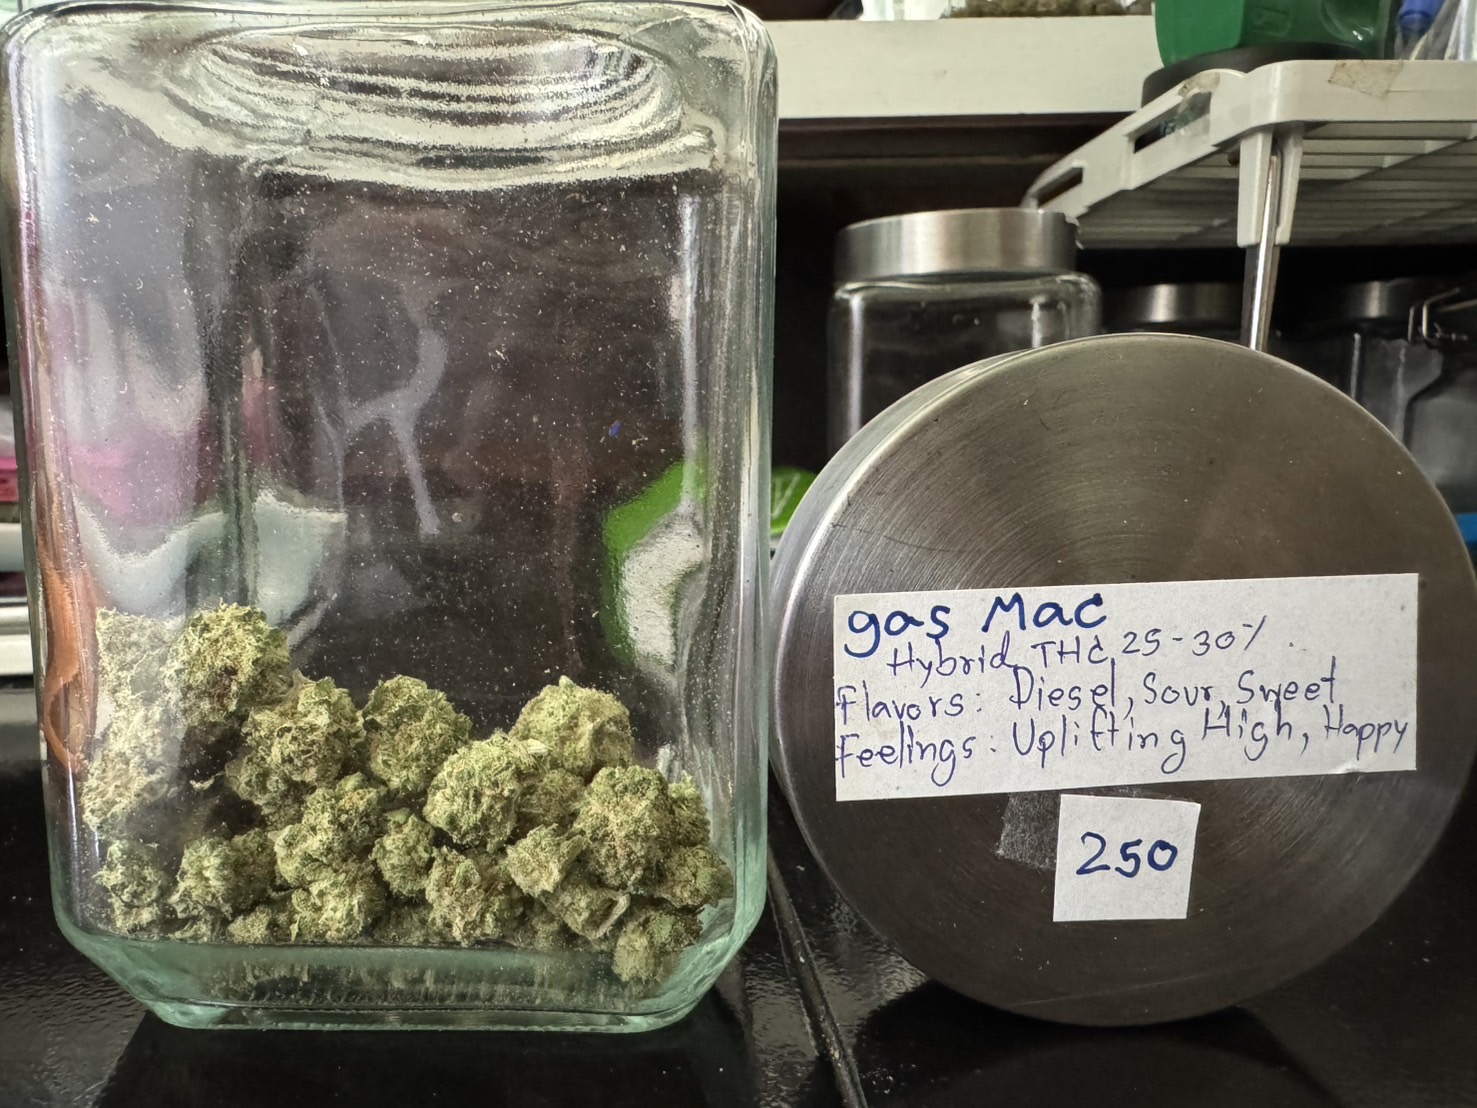 gas Mac
Hybrid, THC 25-30%.
Flavors: Diesel, Sour, Sweet
Feelings: Uplifting High, Happy
250